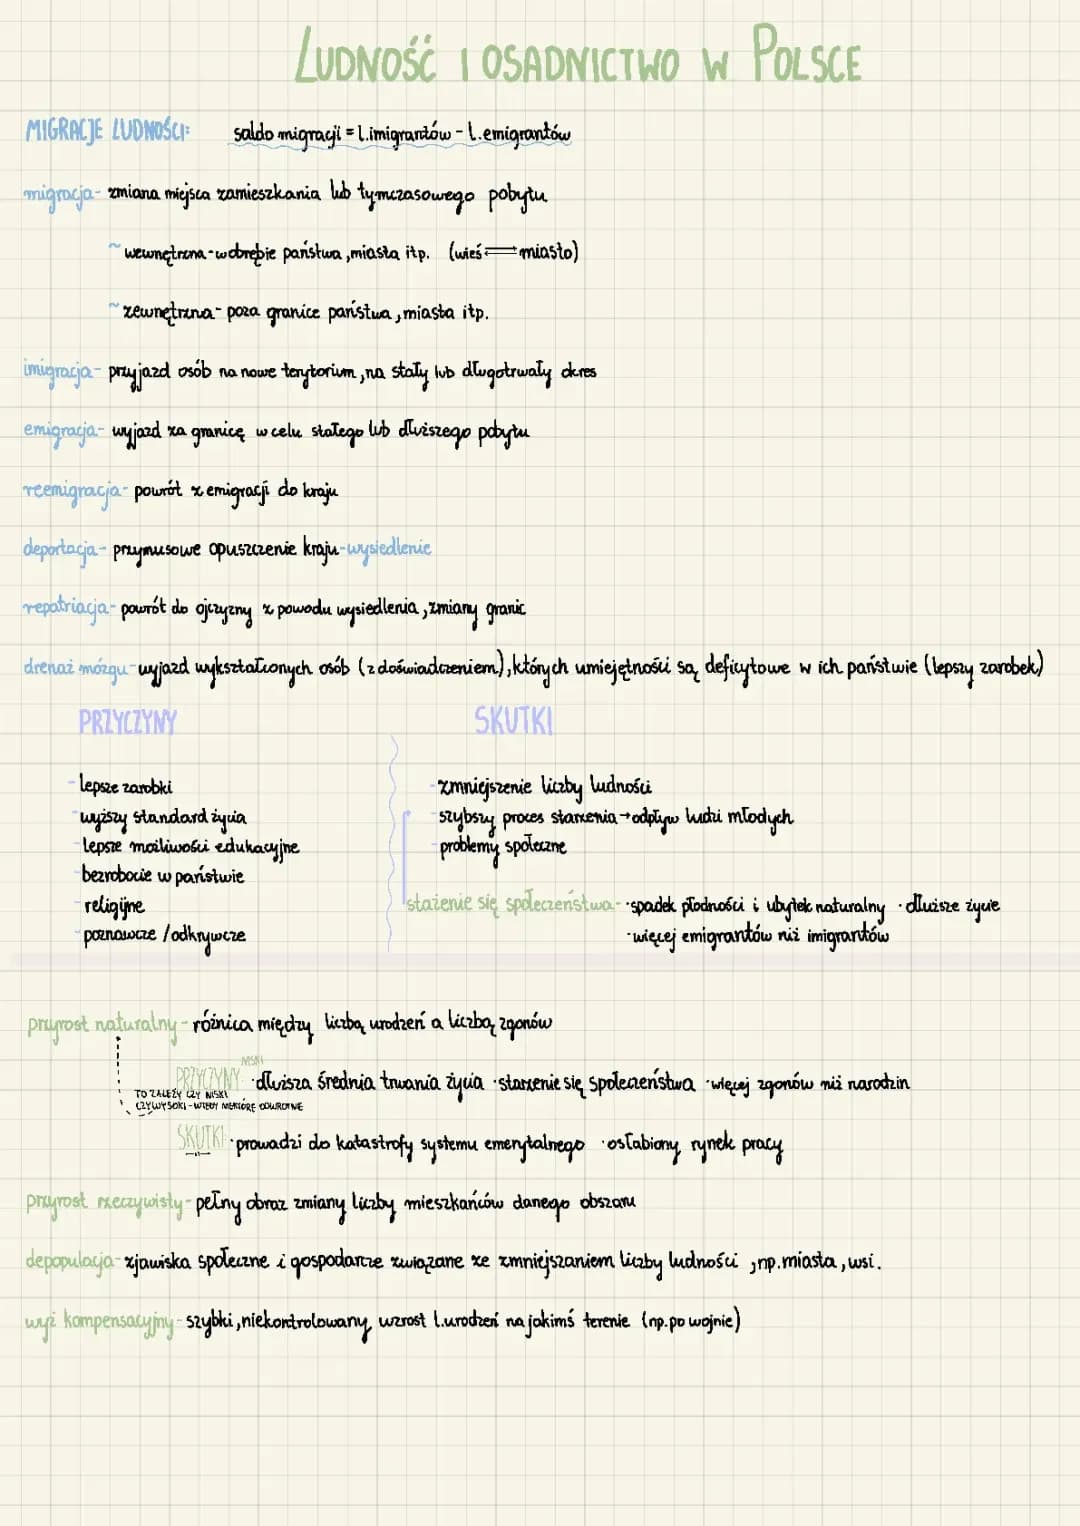 LUDNOŚĆ I OSADNICTWO W POLSCE
MIGRACJE LUDNOŚCI: saldo migracji = l.imigrantów - l.emigrantów
migracja- zmiana miejsca zamieszkania lub tymczasowego pobytu
~ wewnętrzna - w obrębie państwa, miasta itp. (wieś ⇌ miasto)
~ zewnętrzna - poza granice państwa, miasta itp.
imigracja- przyjazd osób na nowe terytorium, na stały lub długotrwały okres
emigracja- wyjazd za granicę w celu stałego lub dłuższego pobytu
reemigracja- powrót z emigracji do kraju
deportacja- przymusowe opuszczenie kraju-wysiedlenie
repatriacja- powrót do ojczyzny z powodu wysiedlenia, zmiany granic
drenaż mózgu- wyjazd wykształconych osób (z doświadczeniem), których umiejętności są deficytowe w ich państwie (lepszy zarobek)
PRZYCZYNY
- lepsze zarobki
- wyższy standard życia
- lepsze możliwości edukacyjne
- bezrobocie w państwie
- religijne
- poznawcze / odkrywcze
SKUTKI
- zmniejszenie liczby ludności
- szybszy proces starzenia → odpływ ludzi młodych
- problemy społeczne
stażenie się społeczeństwa- · spadek płodności i ubytek naturalny · dłuższe życie
· więcej emigrantów niż imigrantów
przyrost naturalny - różnica między liczbą urodzeń a liczbą zgonów
NISKI
PRZYCZYNY · dłuższa średnia trwania życia · starzenie się społeczeństwa · więcej zgonów niż narodzin
TO ZALEŻY CZY NISKI
CZY WYSOKI - WTEDY NIEKTÓRE ODWROTNE
SKUTKI · prowadzi do katastrofy systemu emerytalnego · osłabiony rynek pracy
przyrost rzeczywisty- pełny obraz zmiany liczby mieszkańców danego obszaru
depopulacja- zjawiska społeczne i gospodarcze związane ze zmniejszaniem liczby ludności, np. miasta, wsi.
wyż kompensacyjny- szybki, niekontrolowany wzrost l.urodzeń na jakimś terenie (np. po wojnie)